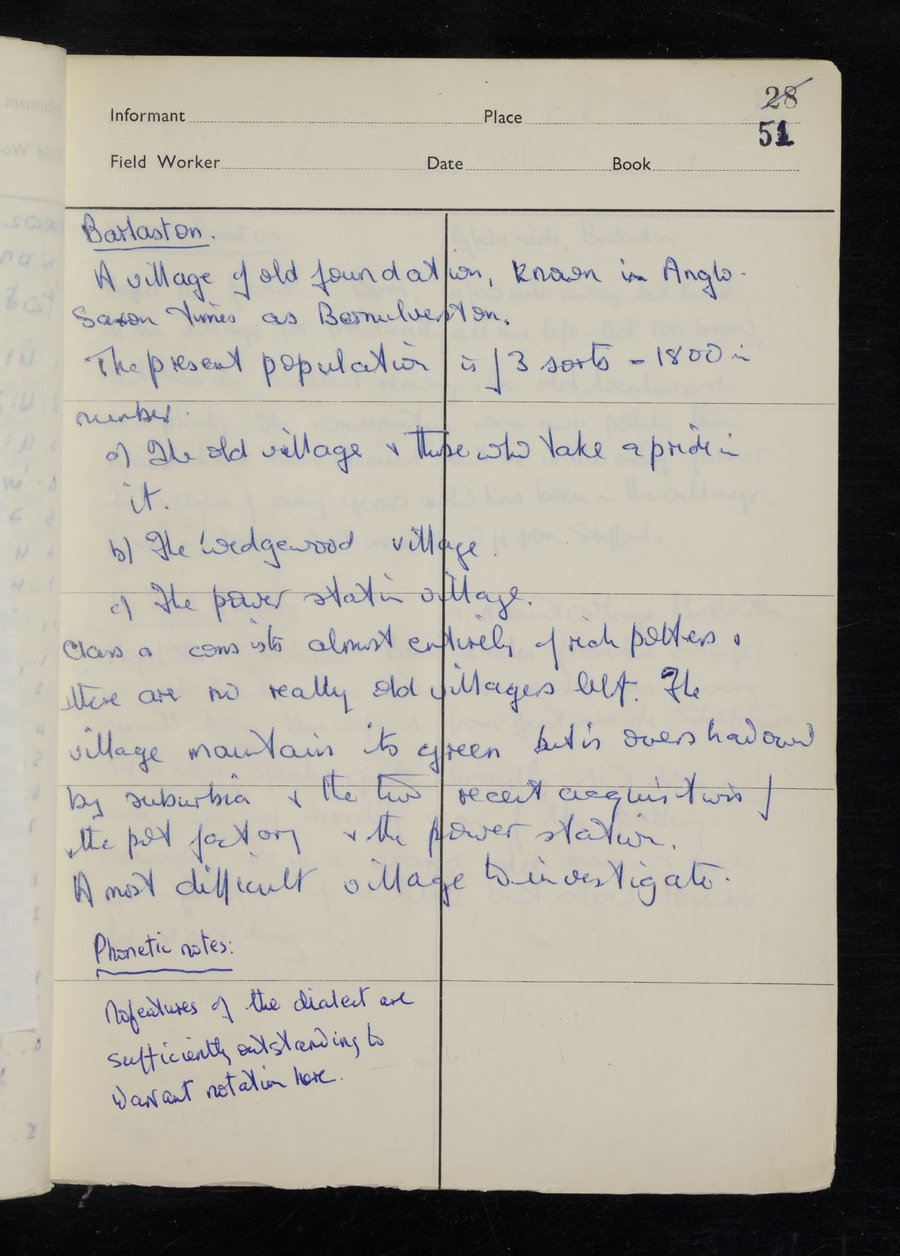 28
Informant Place
51
Field Worker Date Book
Barlaston.
A village of old foundation, known in Anglo-
Saxon times as
The present population is of 3 sorts - 1800 in
number.
a) The old village & those who take a pride in
it.
b) The Wedgewood village.
c) The power station village.
Class a consists almost entirely of rich potters &
there are no really old villagers left. The
village maintain its green but is overshadowed
by suburbia & the two recent acquisitions of
the pot factory & the power station.
A most difficult village to investigate.
Phonetic notes:
No features of the dialect are
sufficiently outstanding to
warrant notation here.